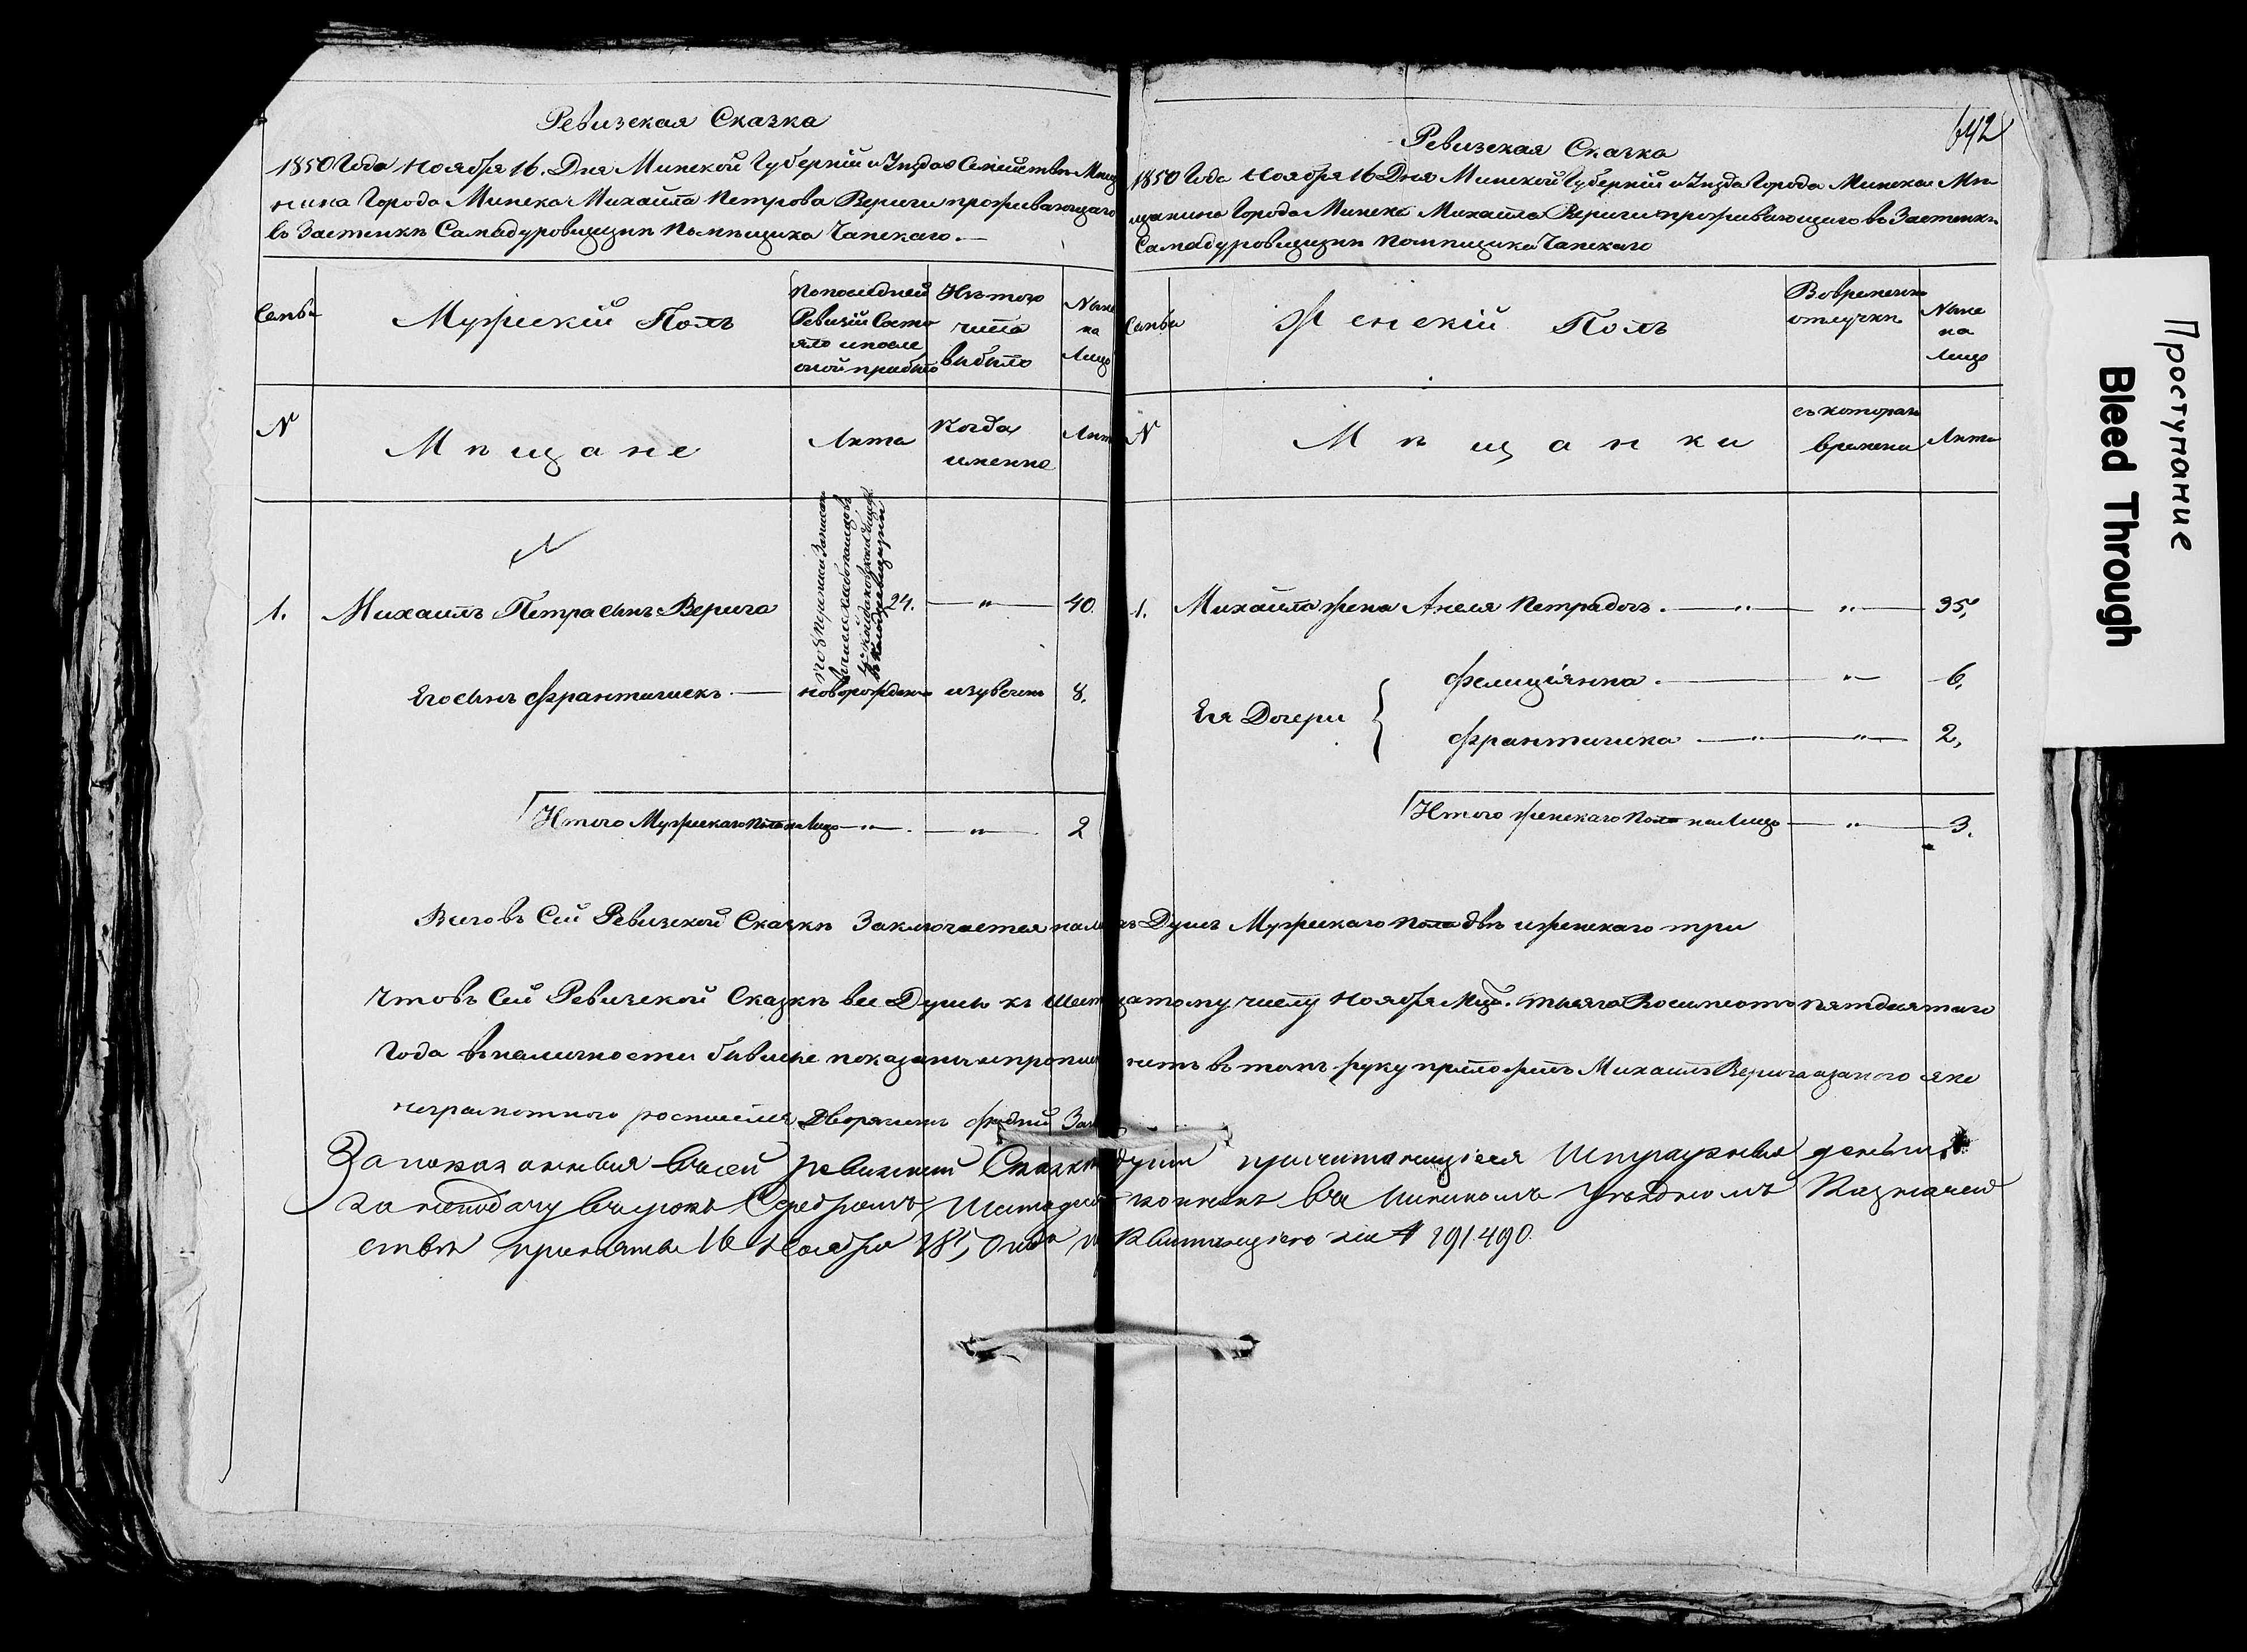 Ревизская Сказка
1850 Года Ноября 16. Дня Минской Губернии и Уѣзда о Семействѣ Мѣща
нина Города Минска Михаила Петрова Вериги проживающаго
въ Застенкѣ Самадуровщизнѣ Помѣщика Чапскаго.—
Семьи
Мужескій Полъ
По последней
Ревизіи Состо
яло и после
оной прибыло
Изъ того
числа
выбыло
Ныне
на
Лицо
N
Мѣщане
Лѣта
Когда
именно
Лѣта
1. Михаилъ Петра сынъ Верига 24. — " — 40.
Его сынъ Франтишекъ — новорожденъ изувеченъ 8.
Итого Мужескаго Пола на Лицо — " — — " — 2
Ревизская Сказка
642
1850 Года Ноября 16 Дня Минской Губерніи и Уѣзда Города Минска Мѣ
щанина Города Минска Михаила Вериги проживающаго въ Застенкѣ
Самадуровщизнѣ Помѣщика Чапскаго
Семьи
Женскій Полъ
Во временной
отлучкѣ
Ныне
на
Лицо
N
Мѣщанки
съ котораго
времени
Лѣта
1. Михаила жена Анеля Петра дочь. — " — " — 35.
Ея Дочери { Фелиціянна. — " — 6.
Франтишка — " — " — 2.
Итого женскаго Пола на Лицо — " — 3.
Всего въ Сей Ревизской Сказкѣ Заключается Душъ Мужескаго Пола двѣ и женскаго три
Что въ Сей Ревизской Сказкѣ все Души къ числу Ноября Мца. тысяча Восемсотъ пятдесятаго
Года въ наличности бывшіе показаны и нетъ въ томъ руку приложилъ Михаилъ Верига а за него яко
неграмотного росписался Дворянинъ
За показанныя въ сей ревизской Сказкѣ души причитающіеся Штрафныя деньги
за неподачу въ срокъ Серебромъ копѣекъ въ Минскомъ Уѣздномъ Казначей
ствѣ приняты 16 Ноября 1850 года Квитанцією за № 291490
Проступание
Bleed Through